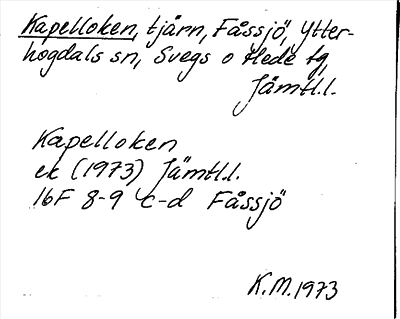 Kapelloken, tjärn, Fåssjö, Ytter-
hogdals sn, Svegs o Hede tg,
Jämtl.l.
Kapelloken
ek (1973) Jämtl.l.
16F 8-9 c-d Fåssjö
K.M.1973